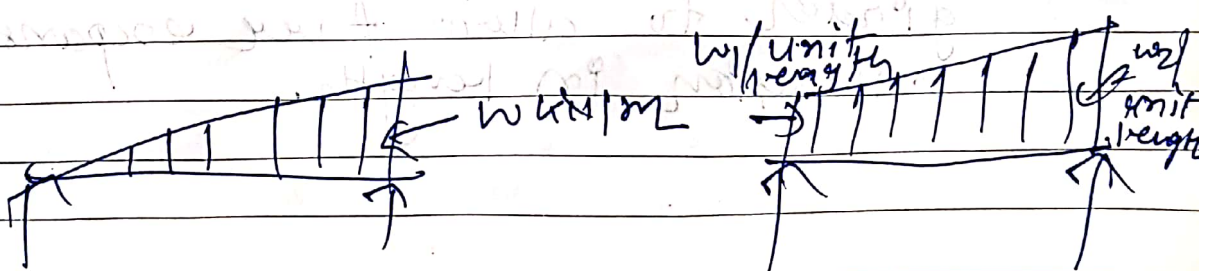 w kN/m
w1/unit
length
w2/
unit
length